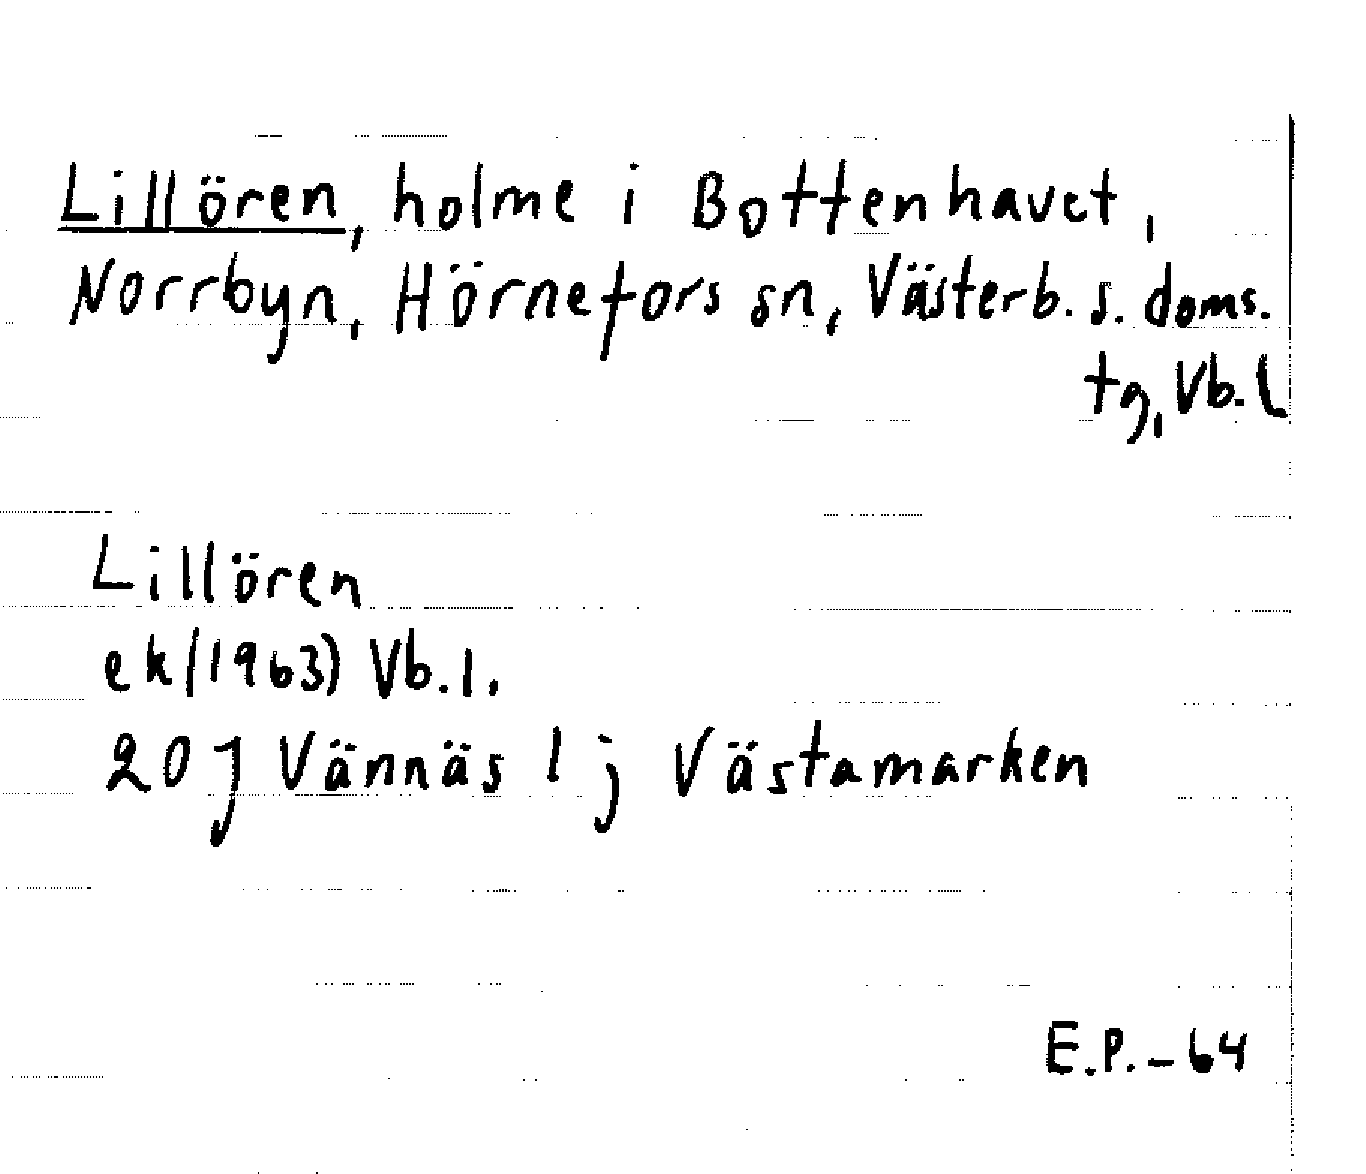 Lillören, holme i Bottenhavet,
Norrbyn, Hörnefors sn, Västerb. s. doms.
tg, Vb. l
Lillören
ek (1963) Vb. l.
20 J Vännäs l j Västamarken
E.P. – 64